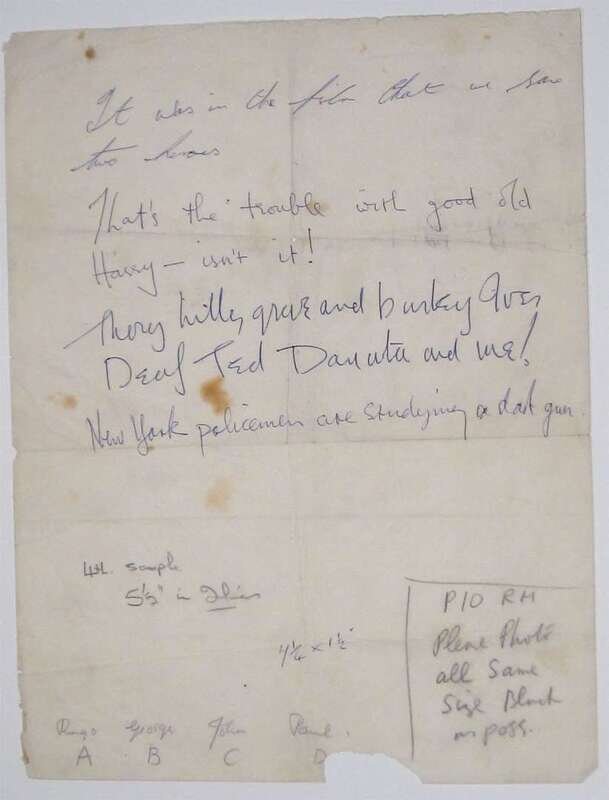 It was in the film that we saw
two heroes
That's the trouble with good old
Harry – isn't it!
Thorg hilly grove and burley Ives
Deaf Ted Danota and me!
New York policemen are studying a dart gun.
4th. sample
5½" in
4¼ x 1½"
P/O RH
Please Photo
all Same
Size Black
as poss.
Ringo George John Paul.
A B C D